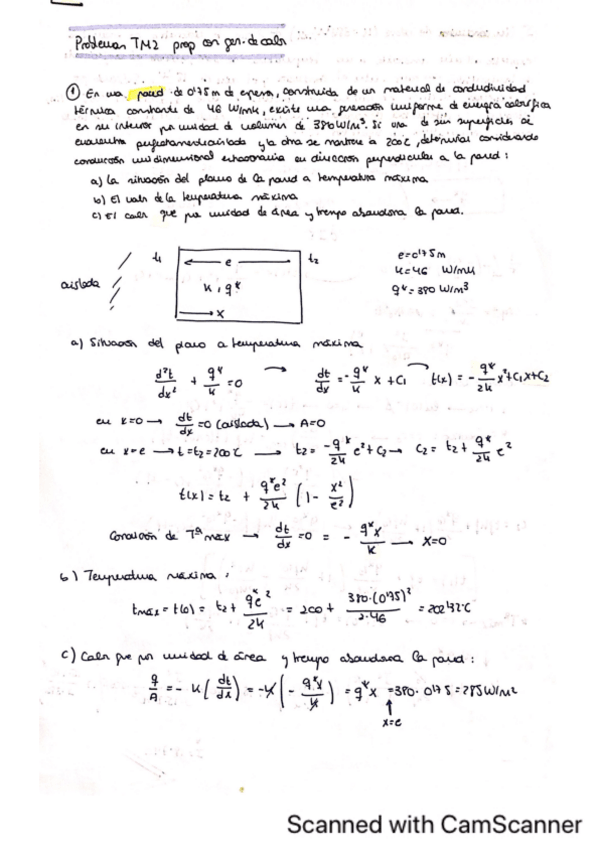 Problemas TM2 prop con gen. de calor
① En una pared de 0'75m de espesor, construida de un material de conductividad
térmica constante de 46 W/mk, existe una generación uniforme de energía calorífica
en su interior por unidad de volumen de 380W/m³. Si una de sus superficies se
encuentra perfectamente aislada y la otra se mantiene a 200℃, determinar considerando
conducción unidimensional estacionaria en dirección perpendicular a la pared:
a) La situación del plano de la pared a temperatura máxima
b) El valor de la temperatura máxima
c) El calor que por unidad de área y tiempo abandona la pared.
aislada
t₁ e t₂
k, q*
x
e=0'75m
k=46 W/mk
q*=380 W/m³
a) Situación del plano a temperatura máxima
d²t/dx² + q*/k =0 → dt/dx = -q*/k x + C₁ t(x) = - q*/2k x²+C₁x+C₂
en x=0 → dt/dx =0 (aislada) → A=0
en x=e → t=t₂=200℃ → t₂= -q*/2k e²+C₂ → C₂ = t₂+ q*/2k e²
t(x)= t₂ + q*e²/2k (1- x²/e²)
Condición de Tª max → dt/dx =0 = - q*x/k → x=0
b) Temperatura máxima:
tmax = t(0) = t₂+ q*e²/2k = 200+ 380·(0'75)²/2·46 = 202'32℃
c) Calor que por unidad de área y tiempo abandona la pared:
q/A = -k (dt/dx) = -k (- q*x/k) = q*x =380·0'75=285W/m²
x=e
Scanned with CamScanner